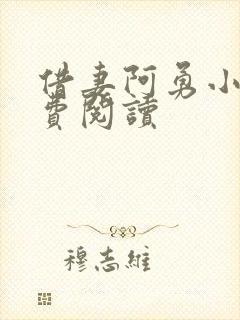 借妻阿勇小
費閱讀
穆志維